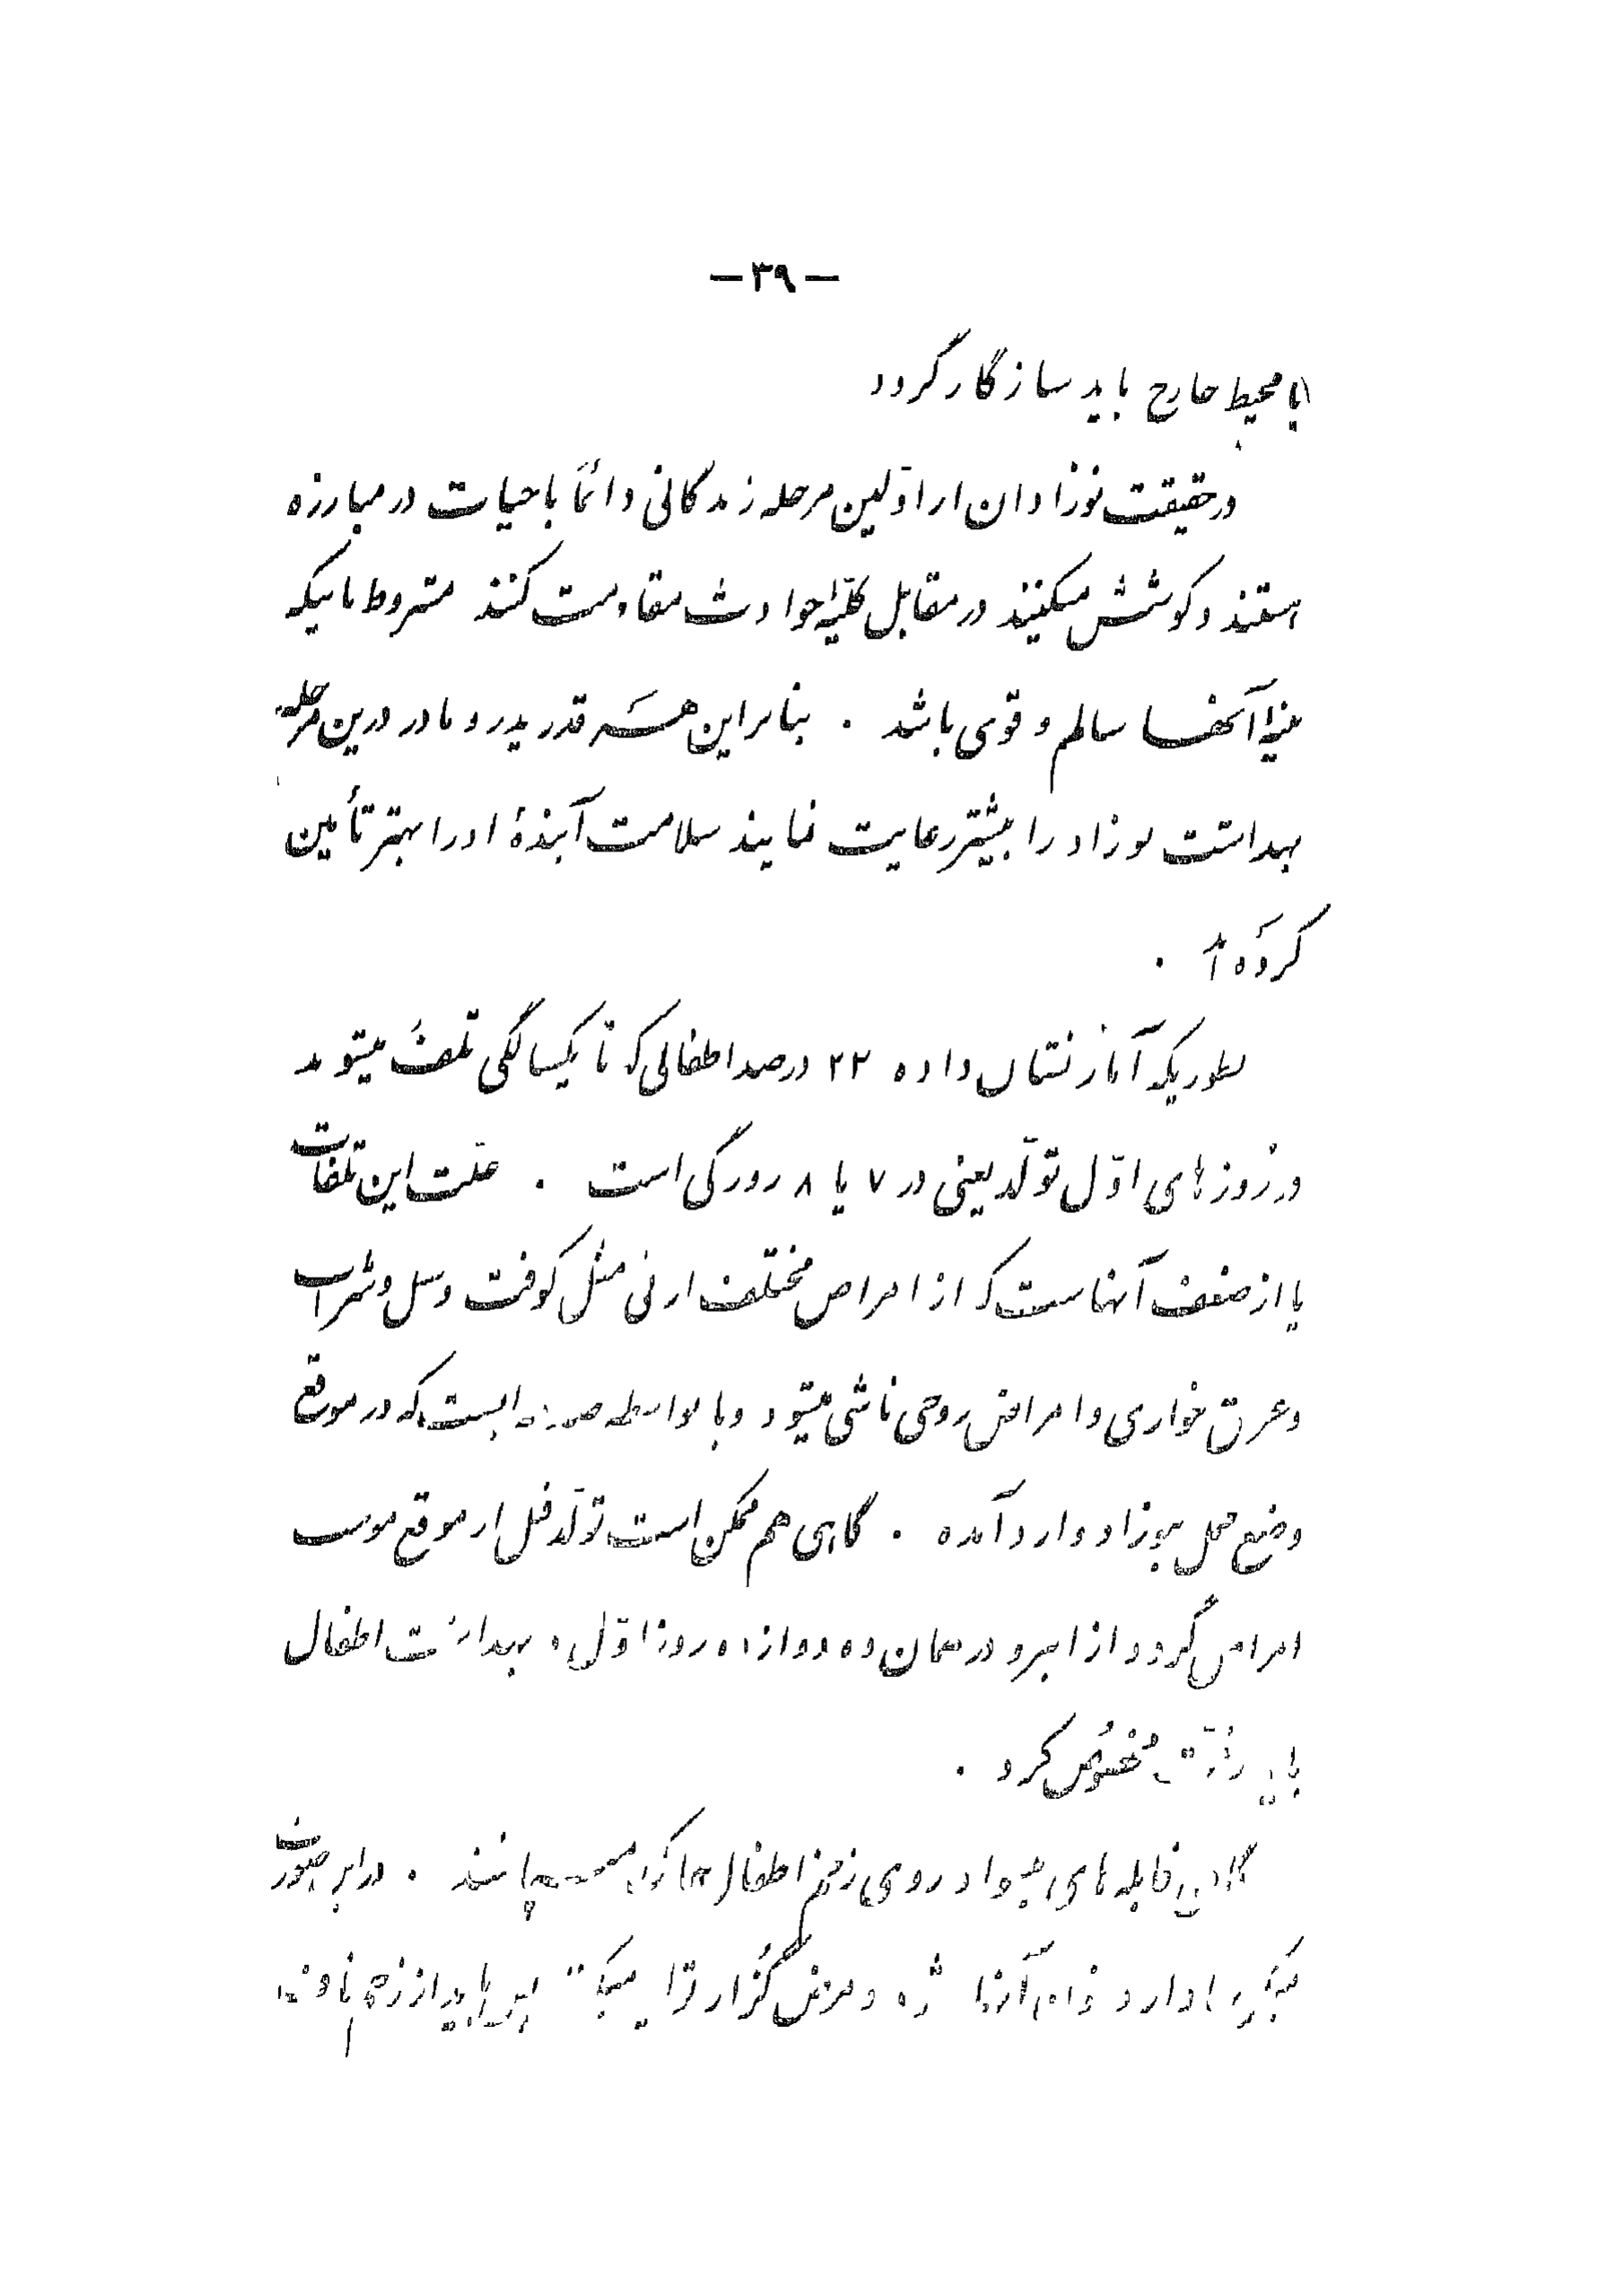 — ۳۹ —
با محیط خارج باید سازگار گردد
در حقیقت نوزادان از اولین مرحله زندگانی دائماً با حیات در مبارزه
هستند و کوشش میکنند در مقابل کلیهٔ حوادث مقاومت کنند مشروط باینکه
بنیهٔ آنها سالم و قوی باشد . بنابراین هر قدر پدر و مادر درین مرحله
بهداشت نوزاد را بیشتر رعایت نمایند سلامت آیندهٔ او را بهتر تأمین
کرده‌اند .
بطوریکه آمار نشان داده ۲۲ درصد اطفالی که تا یکسالگی تلف میشوند
در روزهای اوّل تولّد یعنی در ۷ یا ۸ روزگی است . علّت این تلفات
یا از ضعف آنهاست که از امراض مختلف ارثی مثل کوفت و سل و شراب
و عرق خواری و امراض روحی ناشی میشود و یا بواسطه صدمه ایست که در موقع
وضع حمل بنوزاد وارد آمده . گاهی هم ممکن است تولّد قبل از موقع موجب
امراض گردد و از اینرو در همان ده دوازده روز اوّل بهداشت اطفال
باید دقّت مخصوص کرد .
قابله های بیسواد روی زخم اطفال . در این صورت
میکرب وارد زخم شده و مرض کزاز تولید میکند باید از زخم ناف